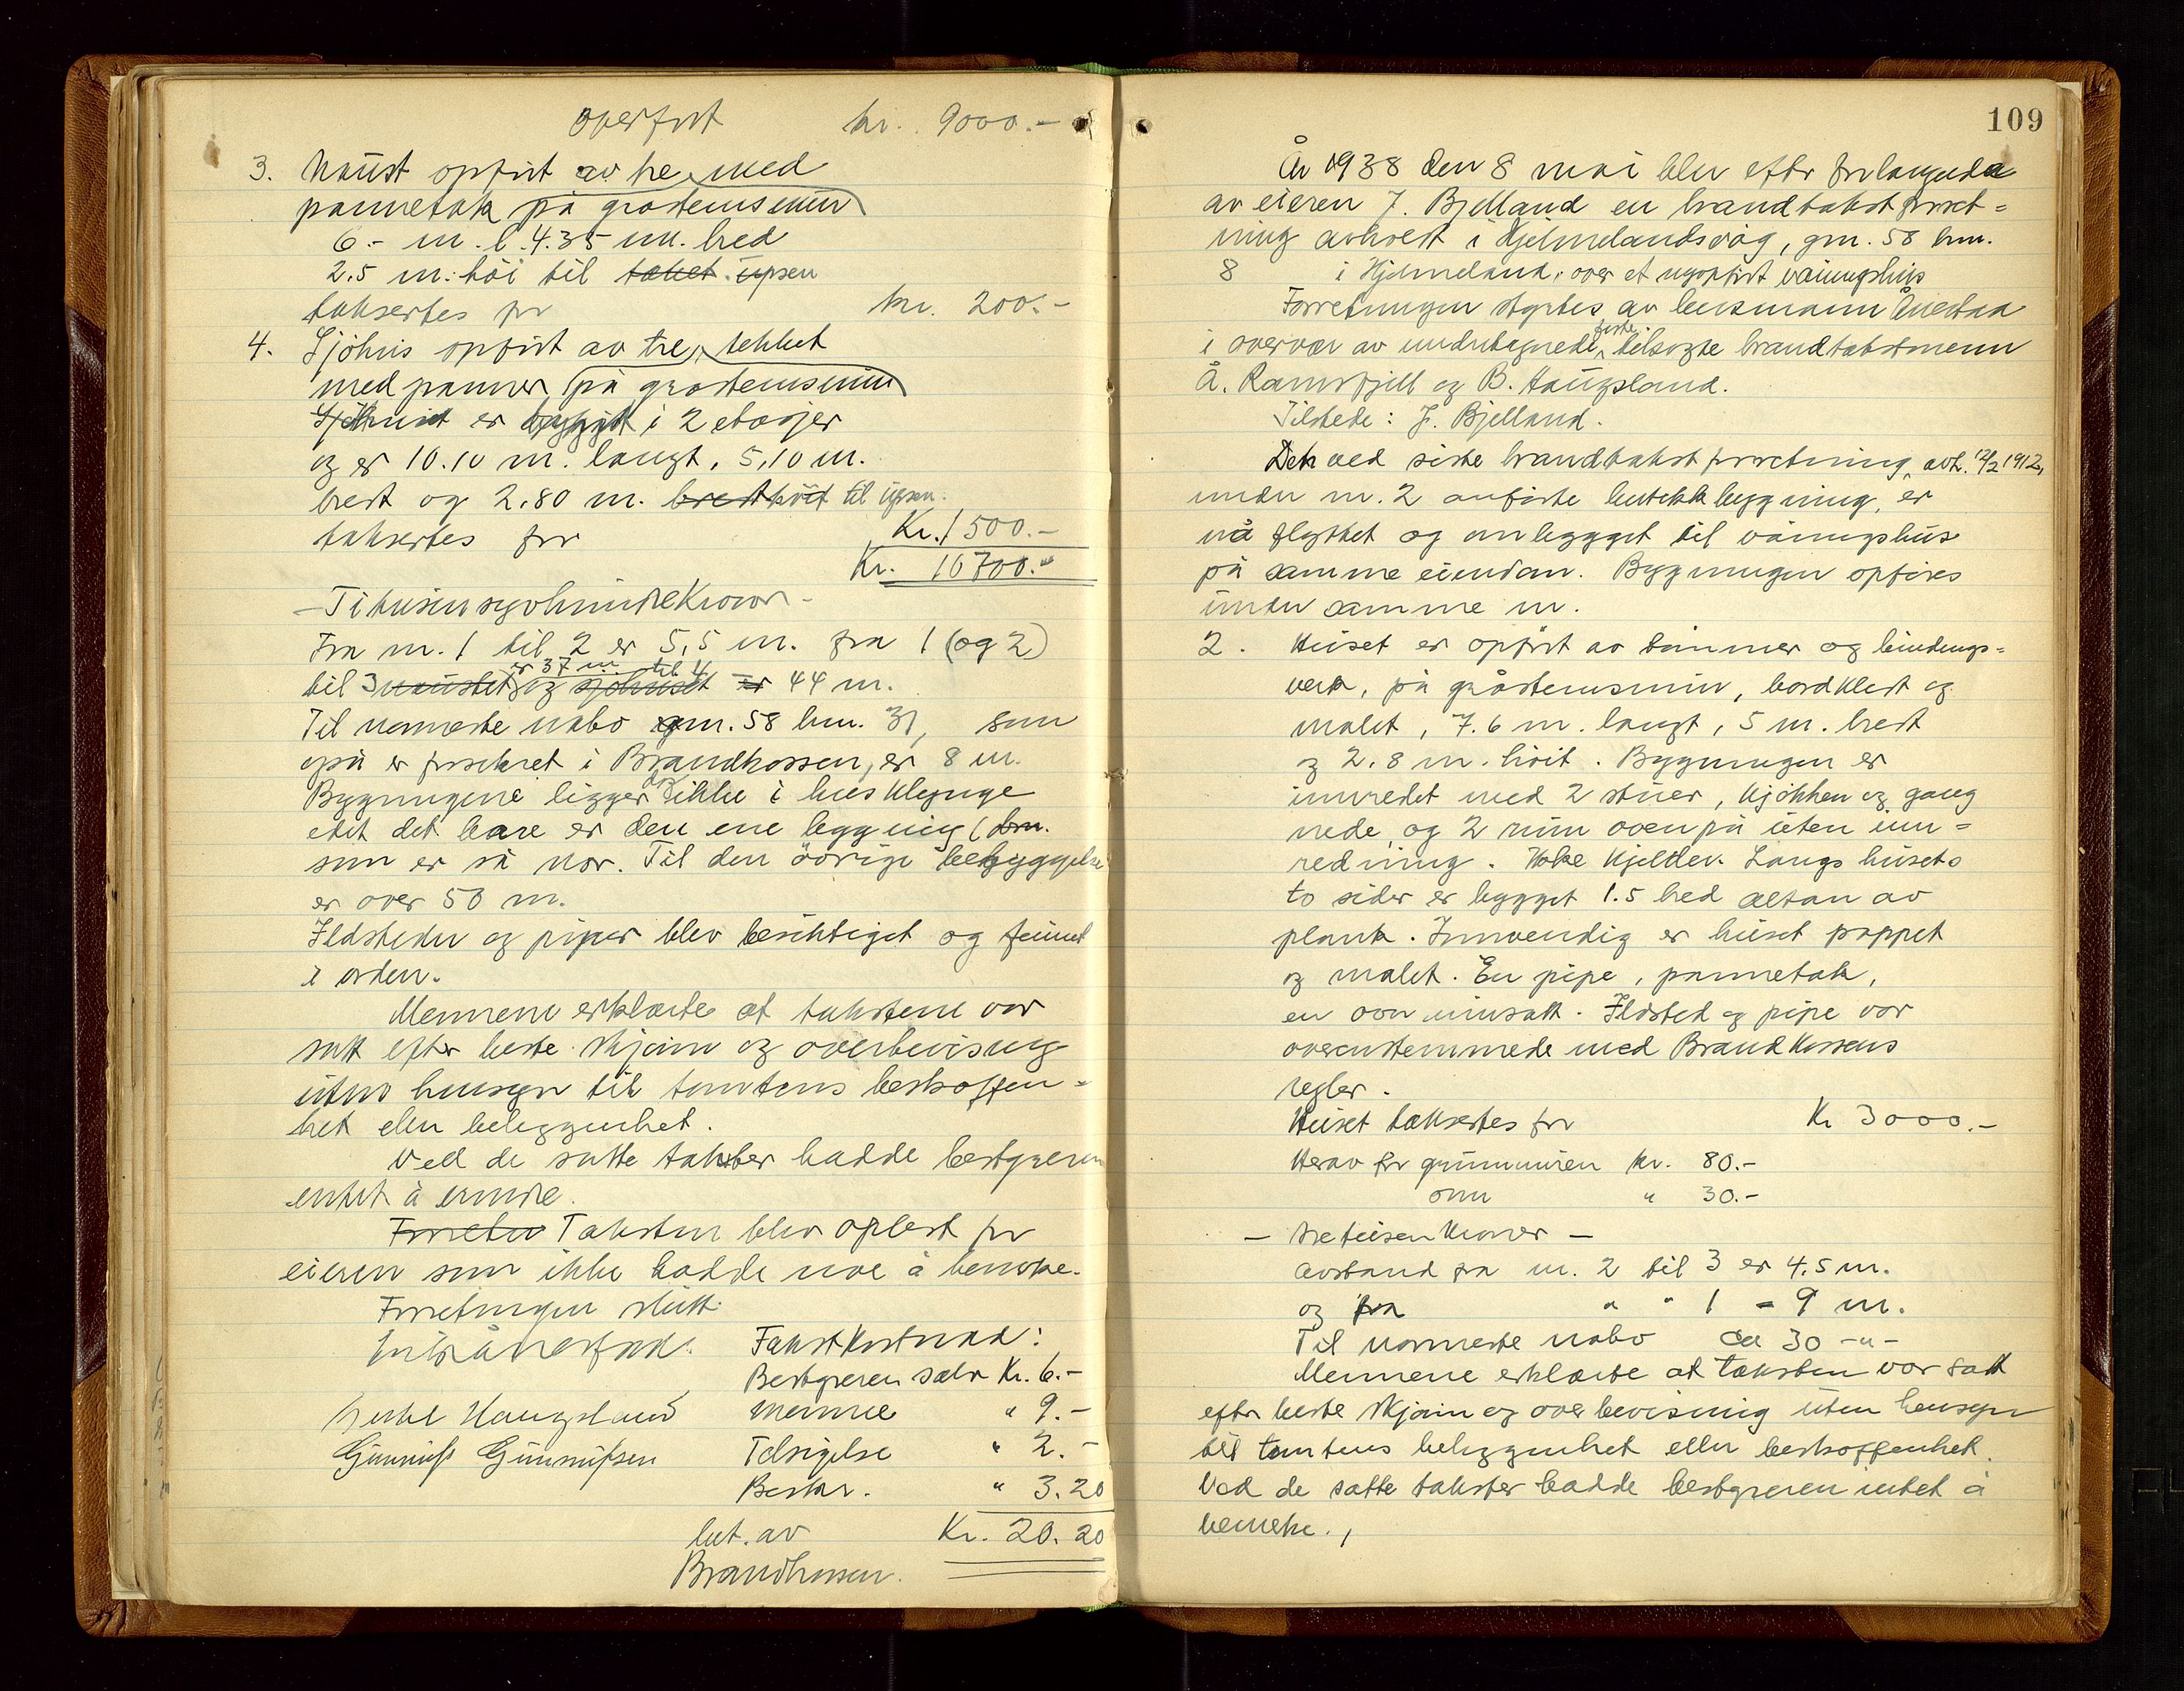 overført kr. 9000.-
3. Naust opført av tre med
pannetak på gråstensmur
6.- m. l. 4.35 m. bred
2.5 m. höi til taket upsen
taksertes for kr. 200.-
4. Sjöhus opført av tre, tekket
med panner på gråstensmur
Sjöhuset er bygget i 2 etasjer
og er 10.10 m. langt, 5,10 m.
bredt og 2.80 m. bredt höit til upsen.
taksertes for Kr. 1500.-
Kr. 10700.-
- Titusensyvhundre Kroner -
Fra nr. 1 til 2 er 5,5 m. fra 1 (og 2)
er 37 m til 4
til 3 naustet og sjöhuset er 44 m.
Til nærmeste nabo gnr. 58 bnr. 31, som
også er forsikret i Brandkassen, er 8 m.
Bygningene ligger ikke i husklynge
idet det bare er den ene bygning
som er så nær. Til den övrige bebyggelse
er over 50 m.
Ildsteder og piper blev besiktiget og funnet
i orden.
Mennene erklærte at takstene var
satt efter beste skjönn og overbevisning
uten hensyn til tomtens beskaffen-
het eller beliggenhet.
Ved de satte takster hadde bestyreren
intet å erindre.
Forretn Taksten blev oplest for
eieren som ikke hadde noe å bemerke.
Forretningen slutt.
Takstkostnad:
Bestyreren selv Kr. 6.-
Haugsland mennene " 9.-
Gunnulf Gunnulfsen Tilsigelse " 2.-
Beskr. " 3.20
bet. av Kr. 20.20
Brandkassen.
109
År 1938 den 8 mai blev efter forlangende
av eieren J. Bjelland en brandtakstforret-
ning avholdt i Hjelmelandsvåg, gnr. 58 bnr.
8 i Hjelmeland, over et nyopfört våningshus
Forretningen styrtes av lensmann Ånestad
faste
i overvær av undertegnede, tilsagte brandtakstmenn
Å. Ramsfjell og B. Haugsland.
Tilstede: J. Bjelland.
Den ved siste brandtakstforretning, avh. 12/2 1912,
under nr. 2 anførte butikkbygning, er
nå flyttet og ombygget til våningshus
på samme eiendom. Bygningen opföres
under samme nr.
2. Huset er opfört av tömmer og bindings-
verk, på gråstensmur, bordkledt og
malet, 7.6 m. langt, 5 m. bredt
og 2.8 m. höit. Bygningen er
innredet med 2 stuer, kjökken og gang
nede, og 2 rum ovenpå uten inn-
redning. Ikke kjeller. Langs husets
to sider er bygget 1.5 bred altan av
plank. Innvendig er huset pappet
og malet. En pipe, pannetak,
en ovn innsatt. Ildsted og pipe var
overenstemmede med Brandkassens
regler.
Huset taksertes for Kr 3000.-
Herav for grunnmuren kr. 80.-
ovn " 30.-
- tretusen kroner -
Avstand fra nr. 2 til 3 er 4.5 m.
og fra " " 1 - 9 m.
Til nærmeste nabo ca 30 -"-
Mennene erklærte at taksten var satt
efter beste skjönn og overbevisning uten hensyn
til tomtens beliggenhet eller beskaffenhet.
Ved de satte takster hadde bestyreren intet å
bemerke.